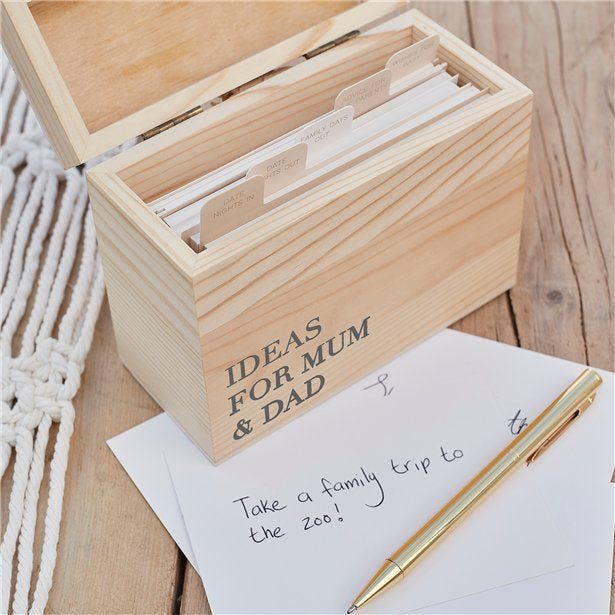 WISHES FOR
BABY
ADVICE FOR
PARENTS
FAMILY DAYS
OUT
DATE
NIGHTS OUT
DATE
NIGHTS IN
IDEAS
FOR MUM
& DAD
Take a family trip to
the zoo!